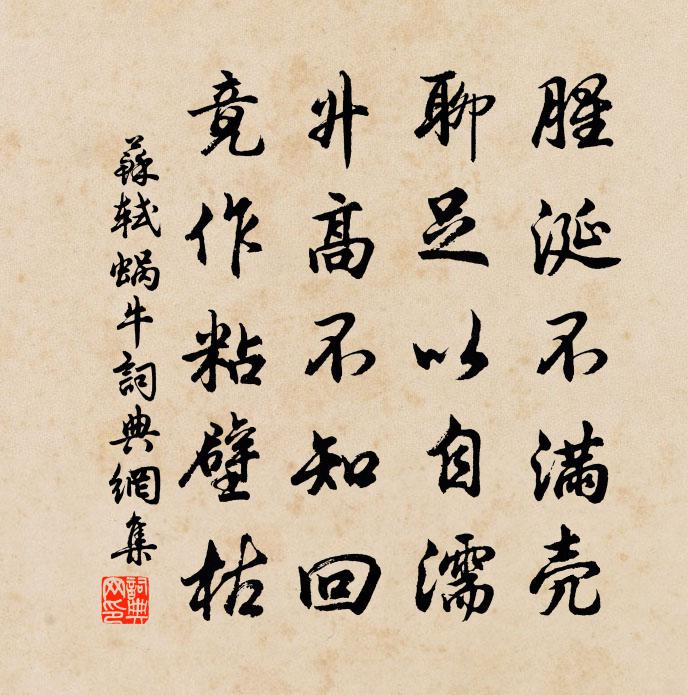 腥涎不满壳
聊足以自濡
升高不知回
竟作粘壁枯
蘇轼蜗牛詞典網集
詞典网印